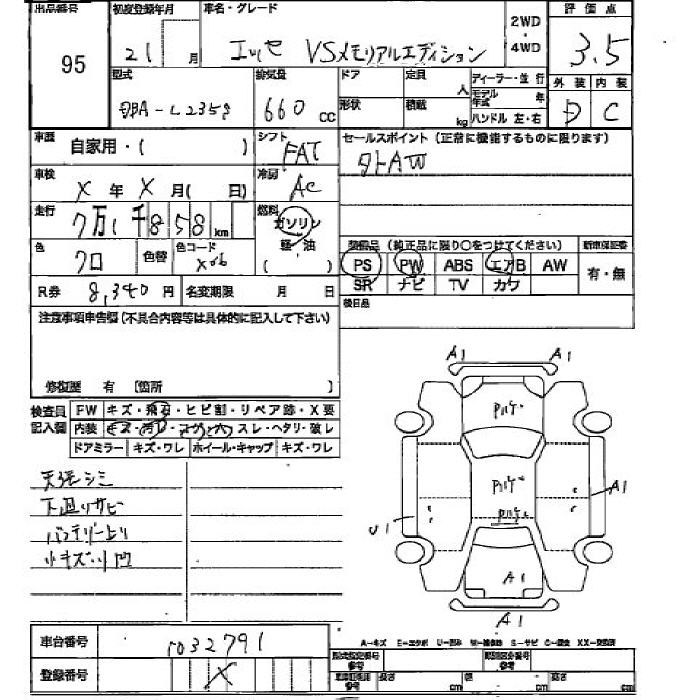 出品番号 初度登録年月 車名・グレード 2WD・4WD 評価点
95 21 月 エッセ VSメモリアルエディション 3.5
型式 排気量 ドア 定員 人 ディーラー・並行 外装 内装
DBA-L235S 660 CC 形状 積載 kg モデル年式 年 ハンドル 左・右 D C
車歴 自家用・( ) シフト FAT セールスポイント (正常に機能するものに限ります)
車検 X 年 X 月( 日) 冷房 AC 外AW
走行 7万1千858 km 燃料 ガソリン 軽・油 ( )
色 クロ 色替 色コード X06 装備品 (純正品に限り○をつけてください) 新車保証書
PS PW ABS エアB AW 有・無
SR ナビ TV カワ
R券 8,340 円 名変期限 月 日 後日品
注意事項申告欄 (不具合内容等は具体的に記入して下さい)
修復歴 有 〔箇所 〕
検査員記入欄 FW キズ・飛石・ヒビ割・リペア跡・X要
内装 キズ・汚レ・コゲ・穴・スレ・ヘタリ・破レ
ドアミラー キズ・ワレ ホイール・キャップ キズ・ワレ
天張シミ
下廻りサビ
バッテリー上り
小キズ小凹
A1 A1
A1
U1
A1
A1
車台番号 1032791
登録番号 X
A-キズ E-エクボ U-凹み W-補修跡 S-サビ C-腐食 XX-交換済
型式指定番号 参考 類別区分番号 参考
長さ cm 幅 cm 高さ cm